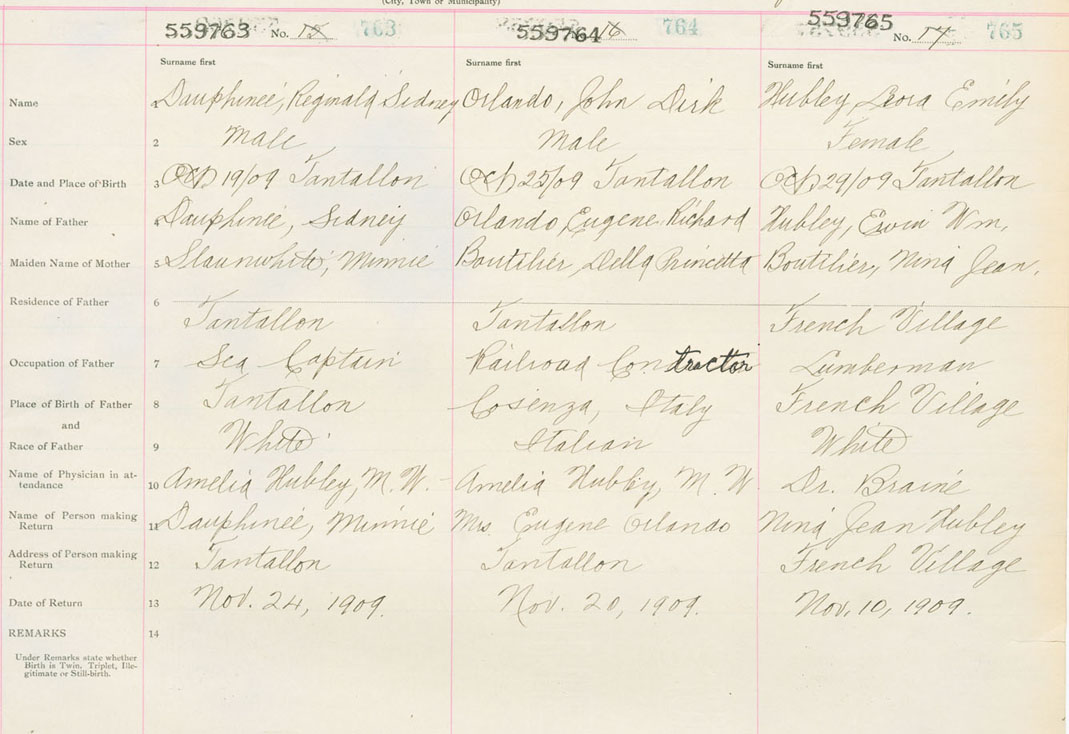 (City, Town or Municipality)
559763 No. 763 559764 16 764 559765 No. 17 765
Surname first Surname first Surname first
Name 1 Dauphineé, Reginald Sidney Orlando, John Dirk Hubley, Leora Emily
Sex 2 Male Male Female
Date and Place of Birth 3 Oct 19/09 Tantallon Oct 25/09 Tantallon Oct 29/09 Tantallon
Name of Father 4 Dauphineé, Sidney Orlando, Eugene Richard Hubley, Erwin Wm,
Maiden Name of Mother 5 Slaunwhite, Minnie Boutilier, Della Boutilier, Nina Jean.
Residence of Father 6
Tantallon Tantallon French Village
Occupation of Father 7 Sea Captain Railroad Contractor Lumberman
Place of Birth of Father 8 Tantallon Cosenza, Italy French Village
and
Race of Father 9 White Italian White
Name of Physician in at-
tendance 10 Amelia Hubley, M. W. Amelia Hubley, M. W Dr. Braine
Name of Person making
Return 11 Dauphineé, Minnie Mrs. Eugene Orlando Nina Jean Hubley
Address of Person making
Return 12 Tantallon Tantallon French Village
Date of Return 13 Nov. 24, 1909. Nov. 20, 1909. Nov, 10, 1909.
REMARKS 14
Under Remarks state whether
Birth is Twin, Triplet, Ille-
gitimate or Still-birth.